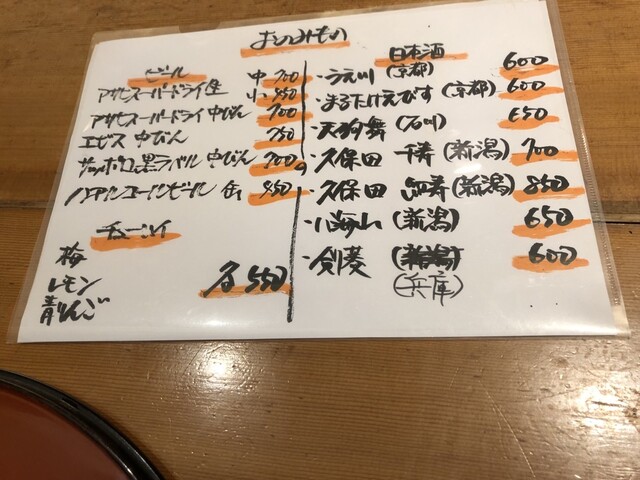 おのみもの
ビール
アサヒスーパードライ生 中 700
小 550
アサヒスーパードライ 中びん 700
エビス 中びん 750
サッポロ黒ラベル 中びん 700
ノンアルコールビール 缶 450
チューハイ
梅
レモン
青りんご
各 550
日本酒
(京都) 600
・まるたけえびす (京都) 600
・天狗舞 (石川) 650
・久保田 千寿 (新潟) 700
・久保田 (新潟) 850
・八海山 (新潟) 650
・剣菱 600
(兵庫)